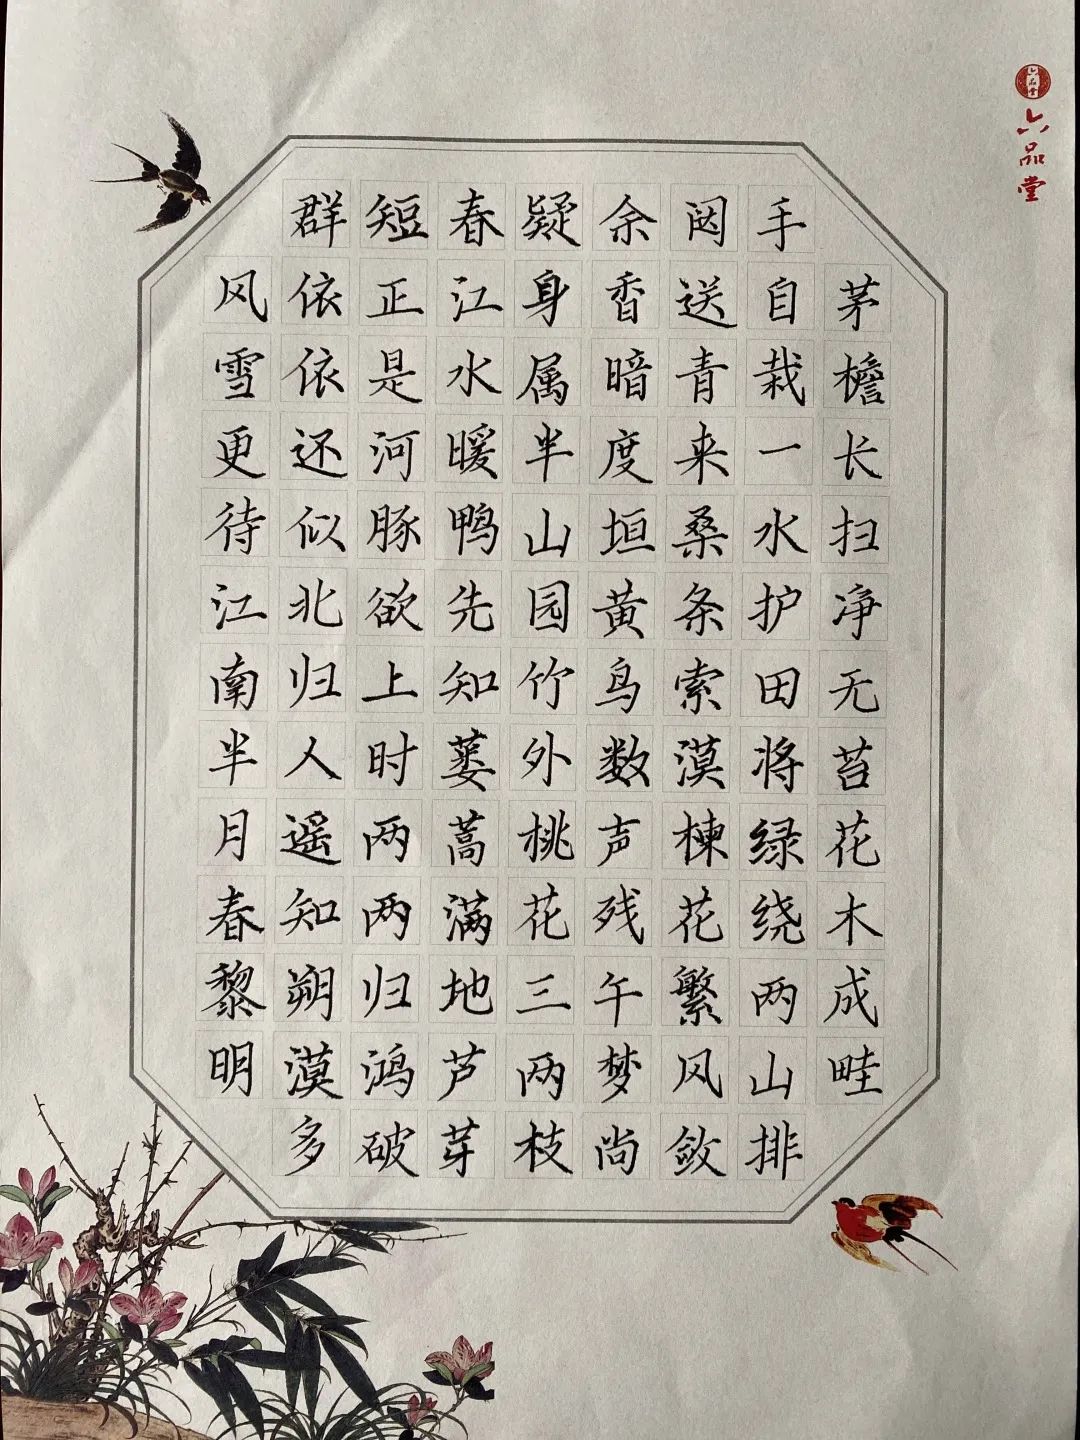 六品堂
六品堂
茅檐长扫净无苔花木成畦
手自栽一水护田将绿绕两山排
闼送青来桑条索漠楝花繁风敛
余香暗度垣黄鸟数声残午梦尚
疑身属半山园竹外桃花三两枝
春江水暖鸭先知蒌蒿满地芦芽
短正是河豚欲上时两两归鸿破
群依依还似北归人遥知朔漠多
风雪更待江南半月春黎明